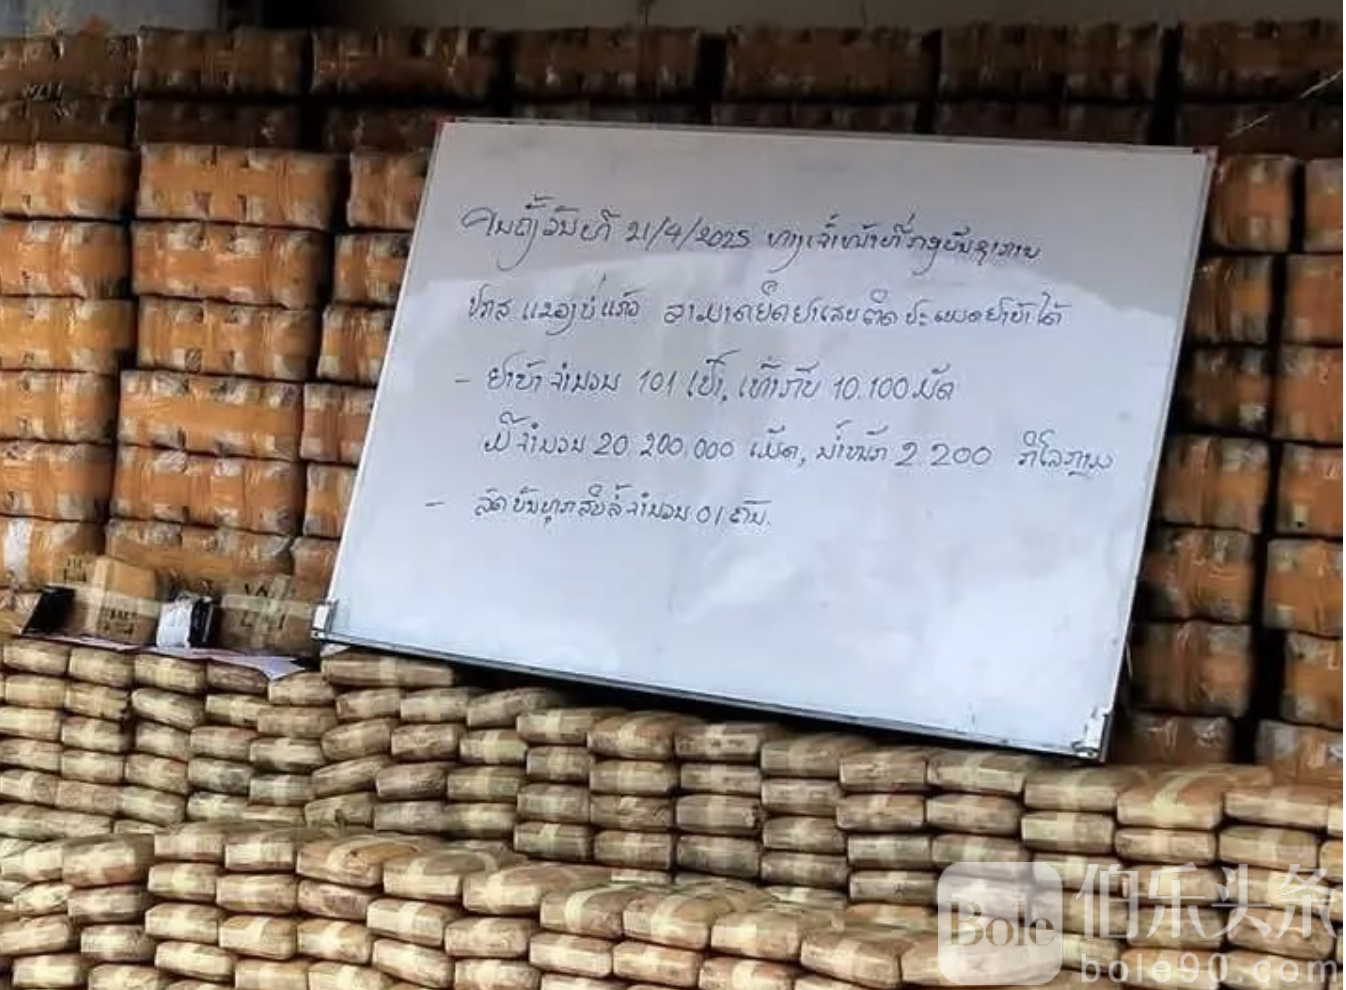 ຄນຄັ້ງວັນທີ 21/4/2025 ທາງເຈົ້າໜ້າທີ່ກອງບັນຊາການ
ປກສ ແຂວງບໍ່ແກ້ວ ສາມາດຍຶດຢາເສບຕິດປະເພດຢາບ້າໄດ້
- ຢາບ້າຈຳນວນ 101 ເປົາ, ເທົ່າກັບ 10.100 ມັດ
ມີຈຳນວນ 20.200.000 ເມັດ, ນ້ຳໜັກ 2.200 ກິໂລກຼາມ
- ລົດບັນທຸກສິບລໍ້ຈຳນວນ 01 ຄັນ.
Bole 伯乐头条
bole90.com